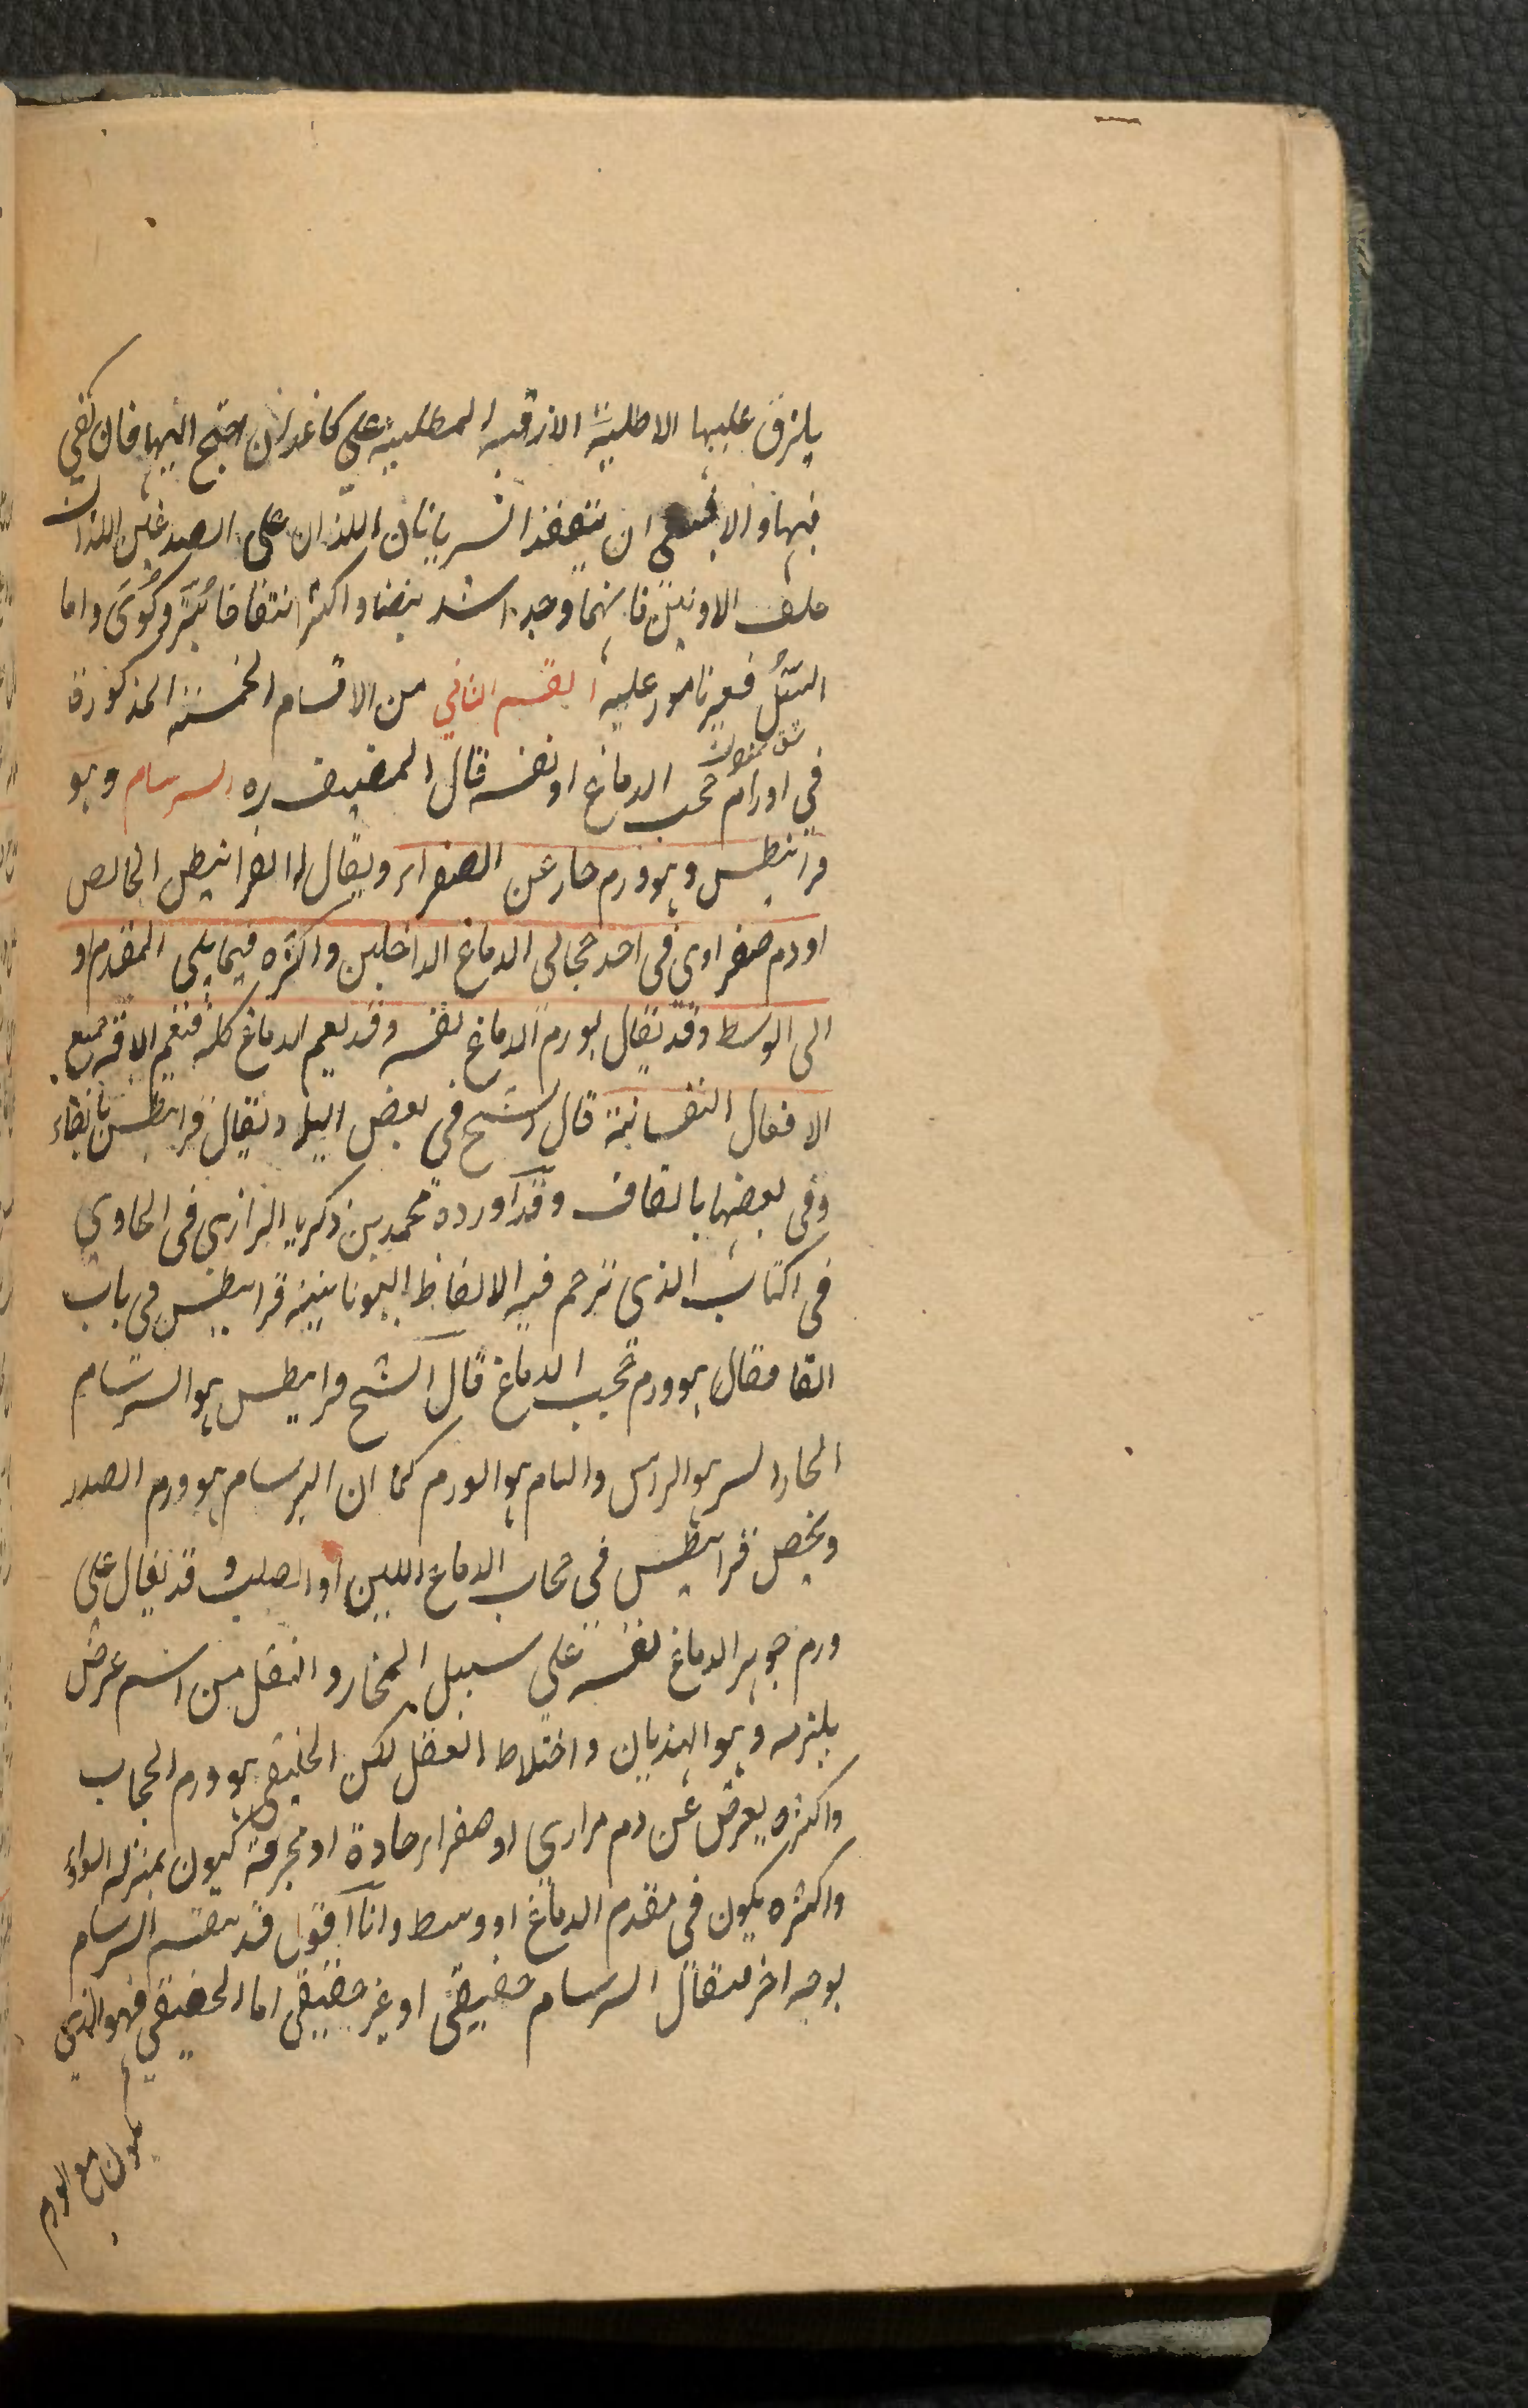 يلزق عليها الاطلية الازقية المطلية على كاغذ ان احتج اليها فان كفى
فيها والا فينبغى ان يتفقد الشريانان اللذان على الصدغين اللذان
خلف الاذنين فايهما وجد اشد نبضا واكثر انتفاخا بُتر وكُوى واما
السَّل فغير نامور عليه القسم الثاني من الاقسام الخمسة المذكورة
في اورام حجب الدماغ او نفسه قال المصنف ره السرسام وهو
قرانيطس وهو ورم حار عن الصفراء ويقال له القرانيطس الخالص
او دم صفراوى فى احد حجابى الدماغ الداخلين واكثره فيما يلى المقدم او
الى الوسط وقد يقال لورم الدماغ نفسه وقد يعم الدماغ كله فتعم الافة جميع
الافعال النفسانية قال الشيخ في بعض البلاد يقال فرانيطس بالفاء
وفى بعضها بالقاف وقد اورده محمد بن زكريا الرازى فى الحاوي
فى الكتاب الذى ترجم فيه الالفاظ اليونانية قرانيطس في باب
القاف فقال هو ورم حجب الدماغ قال الشيخ قرانيطس هو السرسام
الحار السر هو الراس والسام هو الورم كما ان البرسام هو ورم الصدر
ويخص قرانيطس في حجاب الدماغ اللين او الصلب وقد يقال على
ورم جوهر الدماغ نفسه على سبيل المجاز والنقل من اسم عرض
يلزمه وهو الهذيان واختلاط العقل لكن الحقيقى هو ورم الحجاب
واكثره يعرض عن دم مرارى او صفراء حادة او محرقة فيكون بمنزلة السوداء
واكثره يكون فى مقدم الدماغ او وسط وانا اقول قد ينقسم السرسام
بوجه اخر فيقال السرسام حقيقى او غير حقيقى اما الحقيقى فهو الذي
يكون مع الورم